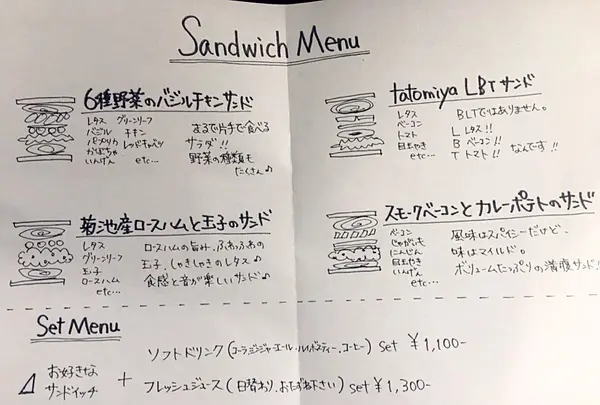 Sandwich Menu
6種野菜のバジルチキンサンド
レタス グリーンリーフ
バジル チキン
パプリカ レッドキャベツ
かぼちゃ
いんげん etc...
まるで片手で食べる
サラダ!!
野菜の種類も
たくさん♪
tatomiya LBTサンド
レタス
ベーコン
トマト
目玉やき
etc...
BLTではありません。
L レタス!!
B ベーコン!!
T トマト!! なんです!!
菊池産ロースハムと玉子のサンド
レタス
グリーンリーフ
玉子
ロースハム
etc...
ロースハムの旨み、ふわふわの
玉子、しゃきしゃきのレタス♪
食感と音が楽しいサンド♪
スモークベーコンとカレーポテトのサンド
ベーコン
じゃがいも
にんじん
目玉やき
いんげん
etc...
風味はスパイシーだけど、
味はマイルド。
ボリュームたっぷりの満腹サンド!!
Set Menu
お好きな
サンドイッチ
+
ソフトドリンク(コーラ・ジンジャーエール・ルイボスティー・コーヒー) set ¥1,100-
フレッシュジュース(日替わり、おたずね下さい) set ¥1,300-